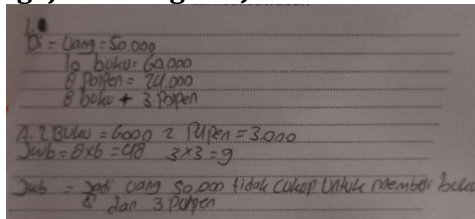 1.
Di = Uang = 50.000
10 buku = 60.000
8 Polpen = 24.000
8 boku + 3 Polpen
A. 2 Buku = 6000 2 Pulpen = 3.000
Jwb = 8x6 = 48 3x3 = 9
Jwb = Jadi uang 50.000 tidak cukop untuk membeli buku
8 dan 3 pulpen